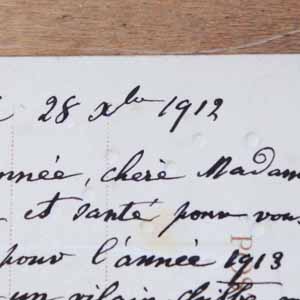 28 Xbre 1912
nnée, chère Madam
et santé pour vou
pour l'année 1913
un vilain